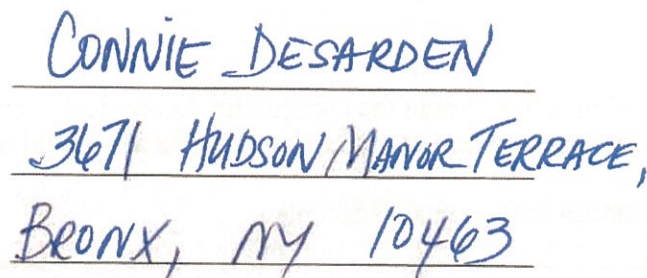 CONNIE DESARDEN
3671 HUDSON MANOR TERRACE,
BRONX, NY 10463